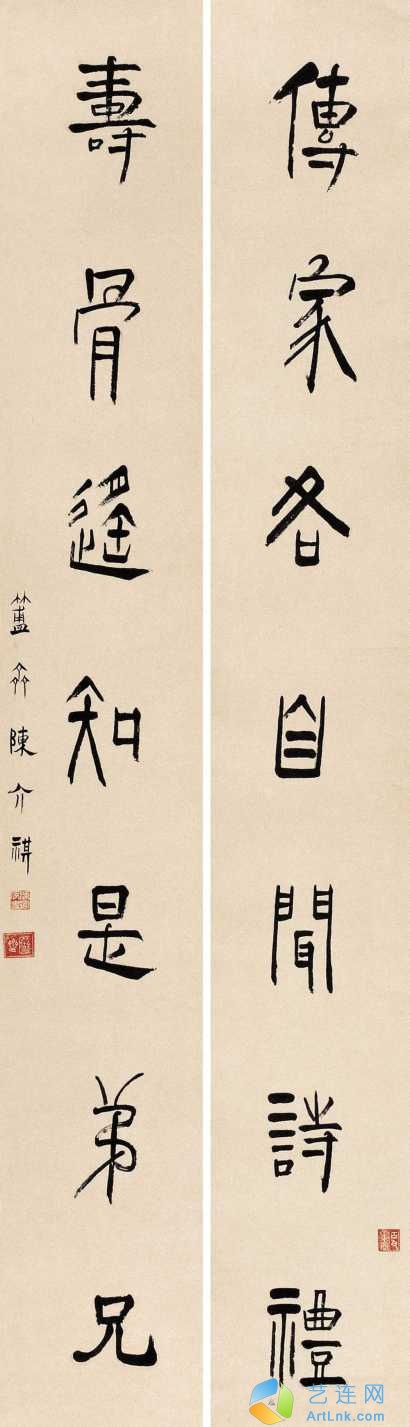 傳家各自聞詩禮
壽骨遥知是弟兄
簠齋陳介祺
艺连网
ArtLnk.com